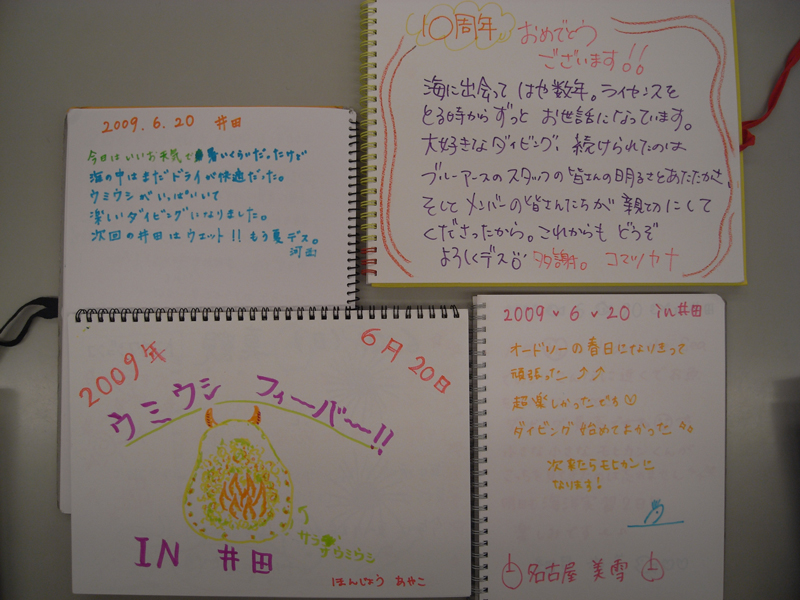 10周年 おめでとう
ございます!!
海に出会って はや数年。ライセンスを
とる時からずっと お世話になっています。
大好きなダイビング、続けられたのは
ブルーアースのスタッフの皆さんの明るさとあたたかさ、
そして メンバーの皆さんたちが 親切にして
くださったから。これからも どうぞ
よろしくデス 多謝。 コマツ カナ
2009.6.20 井田
今日はいいお天気で 暑いくらいだったけど
海の中はまだドライが快適だった。
ウミウシがいっぱいいて
楽しいダイビングになりました。
次回の井田はウェット!! もう夏デス。
2009年 6月20日
ウミウシ フィーバー!!
サラサウミウシ
IN 井田
ほんじょう あやこ
2009.6.20 in井田
オードリーの春日になりきって
頑張った ↑↑
超楽しかったです
ダイビング始めてよかった
次来たらモヒカンに
なります!
名古屋 美雪